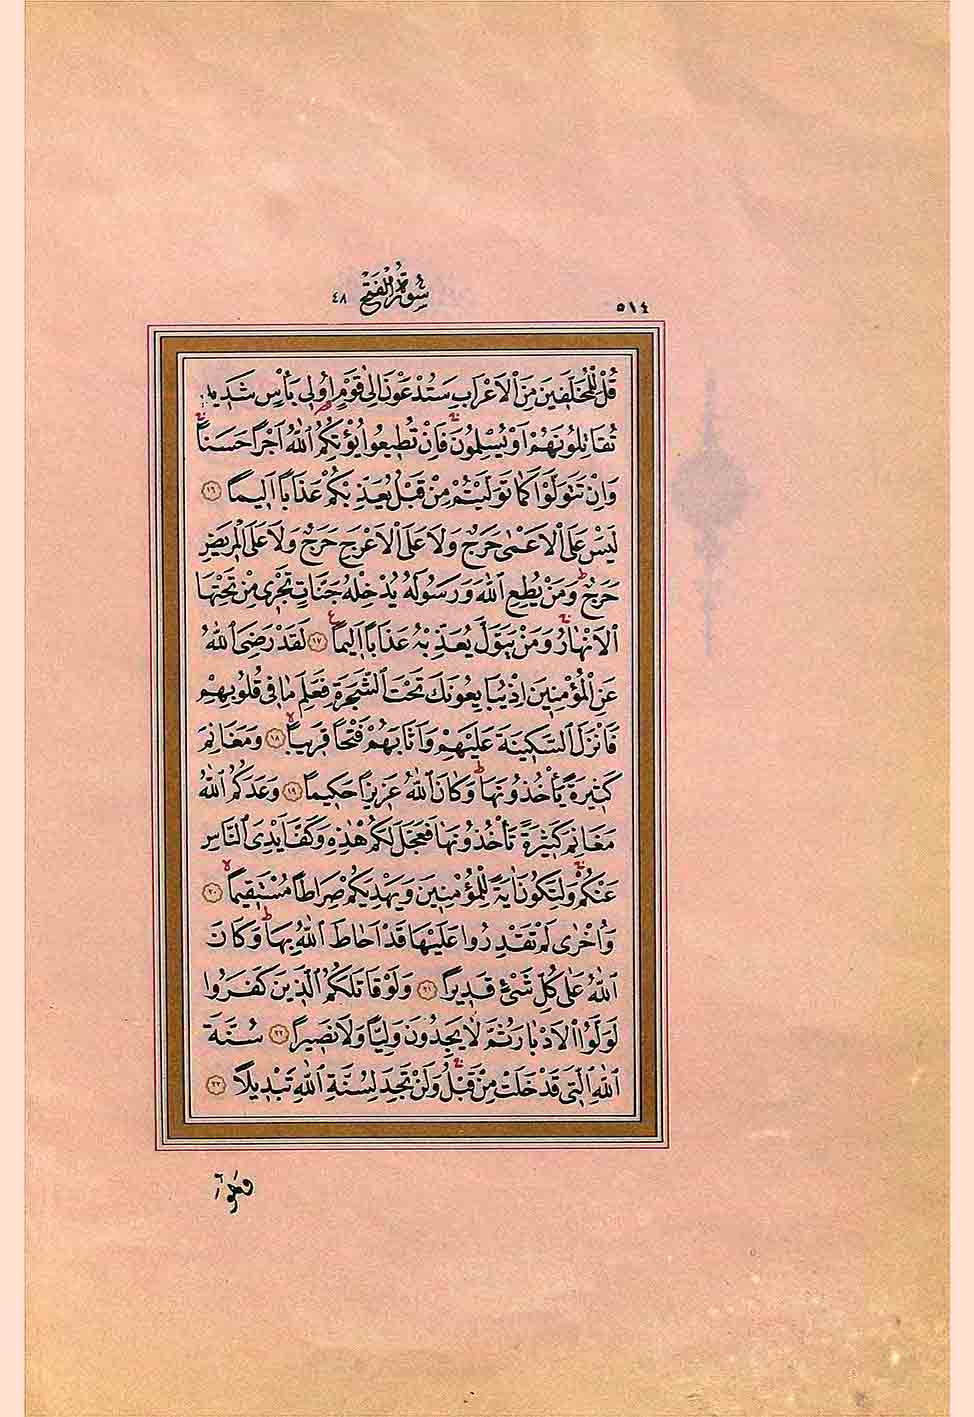 ٥١٤
سُورَةُ الْفَتْحِ ٤٨
قُلْ لِلْمُخَلَّفِينَ مِنَ الْاَعْرَابِ سَتُدْعَوْنَ اِلٰى قَوْمٍ اُولِى بَأْسٍ شَدِيدٍ
تُقَاتِلُونَهُمْ اَوْ يُسْلِمُونَۚ فَاِنْ تُطِيعُوا يُؤْتِكُمُ اللّٰهُ اَجْرًا حَسَنًاۚ
وَاِنْ تَتَوَلَّوْا كَمَا تَوَلَّيْتُمْ مِنْ قَبْلُ يُعَذِّبْكُمْ عَذَابًا اَلِيمًا ﴿١٦﴾
لَيْسَ عَلَى الْاَعْمٰى حَرَجٌ وَلَا عَلَى الْاَعْرَجِ حَرَجٌ وَلَا عَلَى الْمَرِيضِ
حَرَجٌۜ وَمَنْ يُطِعِ اللّٰهَ وَرَسُولَهُ يُدْخِلْهُ جَنَّاتٍ تَجْرِى مِنْ تَحْتِهَا
الْاَنْهَارُۚ وَمَنْ يَتَوَلَّ يُعَذِّبْهُ عَذَابًا اَلِيمًا ﴿١٧﴾ لَقَدْ رَضِىَ اللّٰهُ
عَنِ الْمُؤْمِنِينَ اِذْ يُبَايِعُونَكَ تَحْتَ الشَّجَرَةِ فَعَلِمَ مَا فِى قُلُوبِهِمْ
فَاَنْزَلَ السَّكِينَةَ عَلَيْهِمْ وَاَثَابَهُمْ فَتْحًا قَرِيبًاۙ ﴿١٨﴾ وَمَغَانِمَ
كَثِيرَةً يَأْخُذُونَهَاۜ وَكَانَ اللّٰهُ عَزِيزًا حَكِيمًا ﴿١٩﴾ وَعَدَكُمُ اللّٰهُ
مَغَانِمَ كَثِيرَةً تَأْخُذُونَهَا فَعَجَّلَ لَكُمْ هٰذِهِ وَكَفَّ اَيْدِىَ النَّاسِ
عَنْكُمْۚ وَلِتَكُونَ اٰيَةً لِلْمُؤْمِنِينَ وَيَهْدِيَكُمْ صِرَاطًا مُسْتَقِيمًاۙ ﴿٢٠﴾
وَاُخْرٰى لَمْ تَقْدِرُوا عَلَيْهَا قَدْ اَحَاطَ اللّٰهُ بِهَاۜ وَكَانَ
اللّٰهُ عَلٰى كُلِّ شَىْءٍ قَدِيرًا ﴿٢١﴾ وَلَوْ قَاتَلَكُمُ الَّذِينَ كَفَرُوا
لَوَلَّوُا الْاَدْبَارَ ثُمَّ لَا يَجِدُونَ وَلِيًّا وَلَا نَصِيرًا ﴿٢٢﴾ سُنَّةَ
اللّٰهِ الَّتِى قَدْ خَلَتْ مِنْ قَبْلُۚ وَلَنْ تَجِدَ لِسُنَّةِ اللّٰهِ تَبْدِيلًا ﴿٢٣﴾